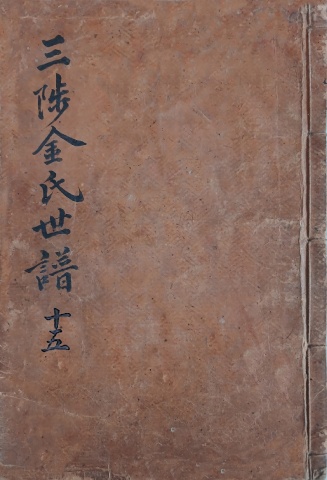 三陟金氏世譜 十五